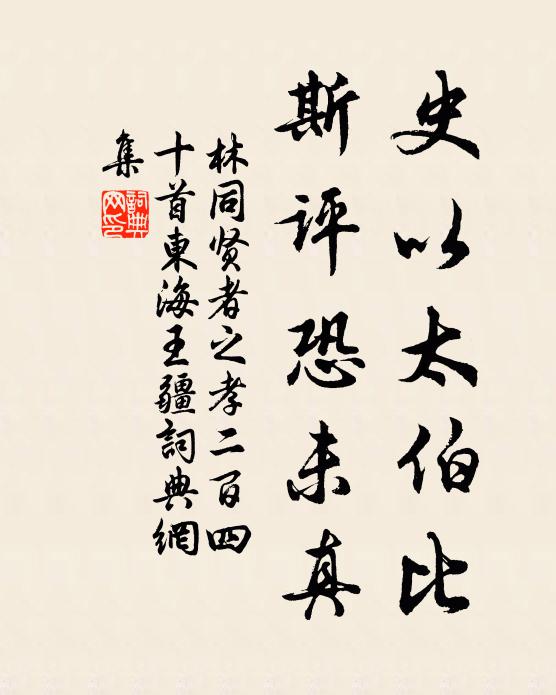 史以太伯比
斯评恐未真
林同贤者之孝二百四
十首東海王疆詞典網
集
詞典网印